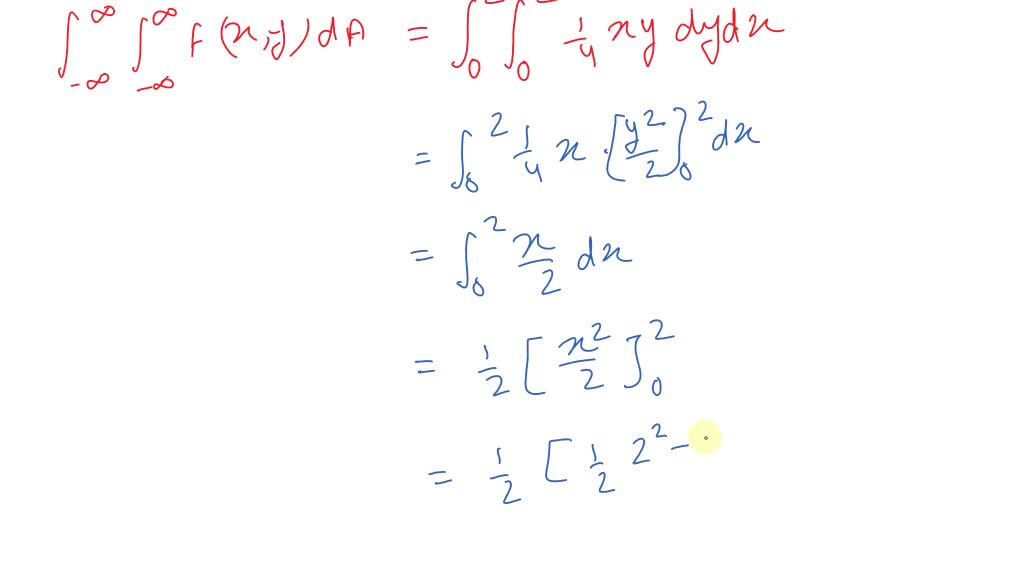 ∫_{-∞}^{∞} ∫_{-∞}^{∞} f(x,y) dA = ∫_0^2 ∫_0^2 1/4 xy dy dx
= ∫_0^2 1/4 x · [y^2/2]_0^2 dx
= ∫_0^2 x/2 dx
= 1/2 [x^2/2]_0^2
= 1/2 [1/2 2^2 -